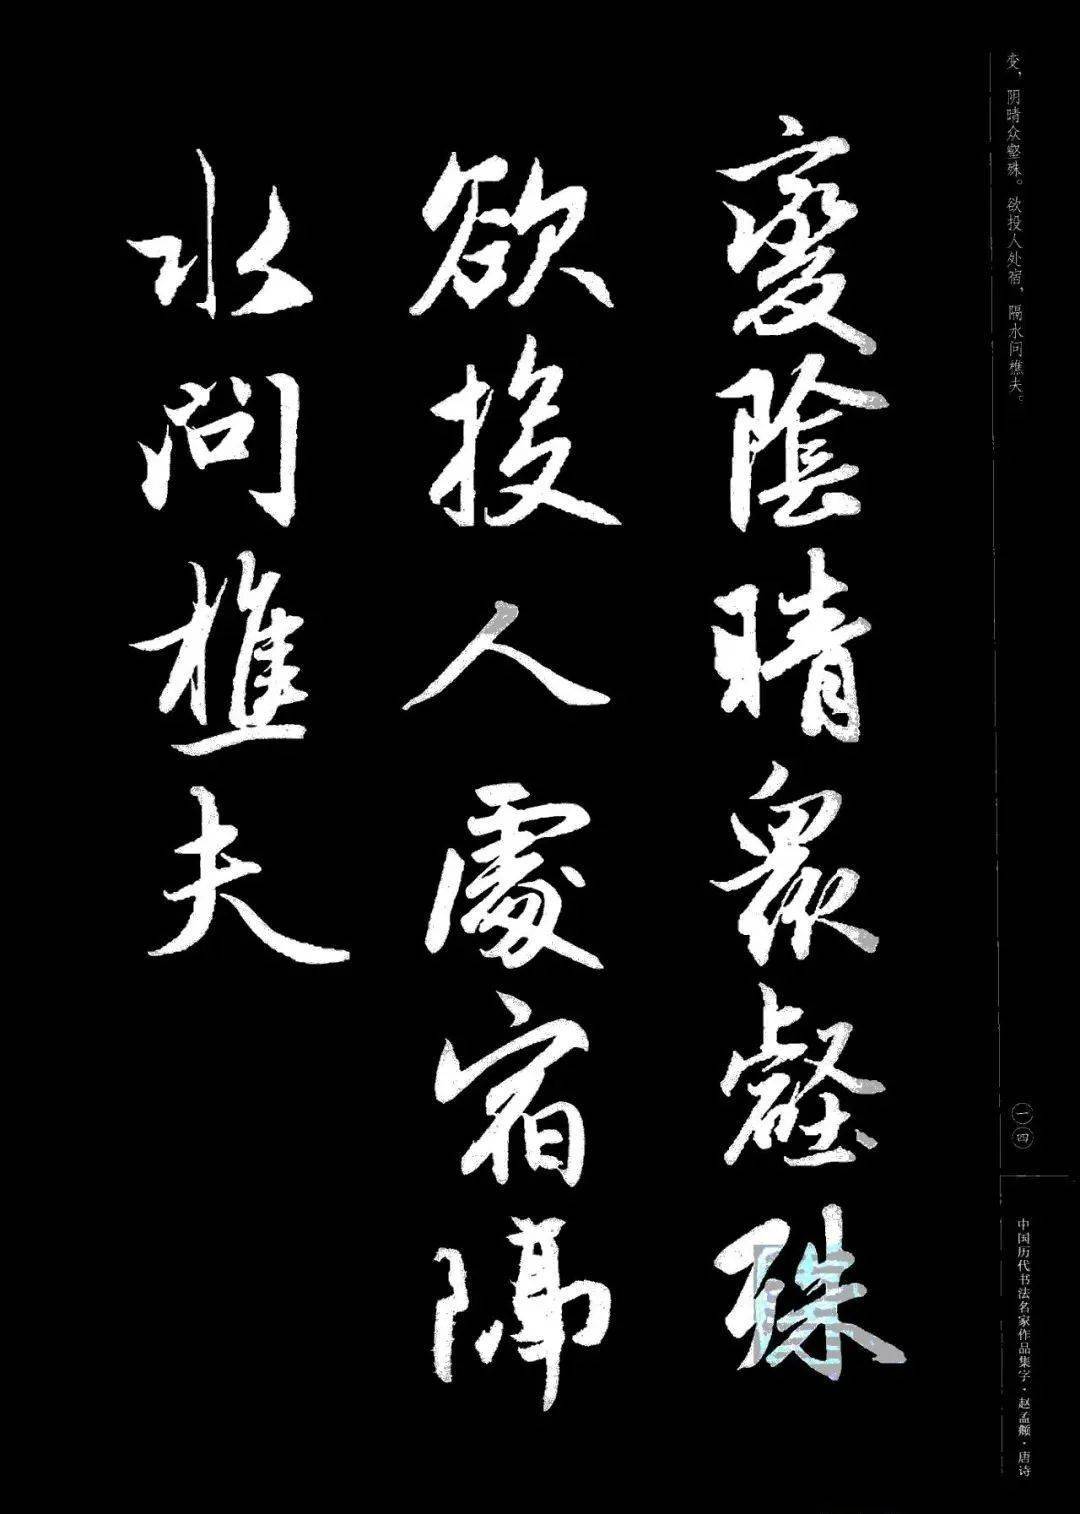 变，阴晴众壑殊。欲投人处宿，隔水问樵夫。
變陰晴眾壑殊
欲投人處宿隔
水问樵夫
一四
中国历代书法名家作品集字·赵孟頫·唐诗